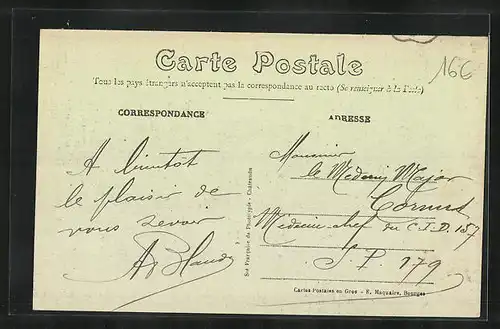 Carte Postale
Tous les pays étrangers n'acceptent pas la correspondance au recto (Se renseigner à la Poste)
CORRESPONDANCE
ADRESSE
166
A bientot
le plaisir de
vous revoir
Monsieur
le Médecin Major
Médecin chef du C.I.D. 157
S.P. 179
Sté Française de Phototypie - Châteaudun
Cartes Postales en Gros - E. Maquaire, Bourges